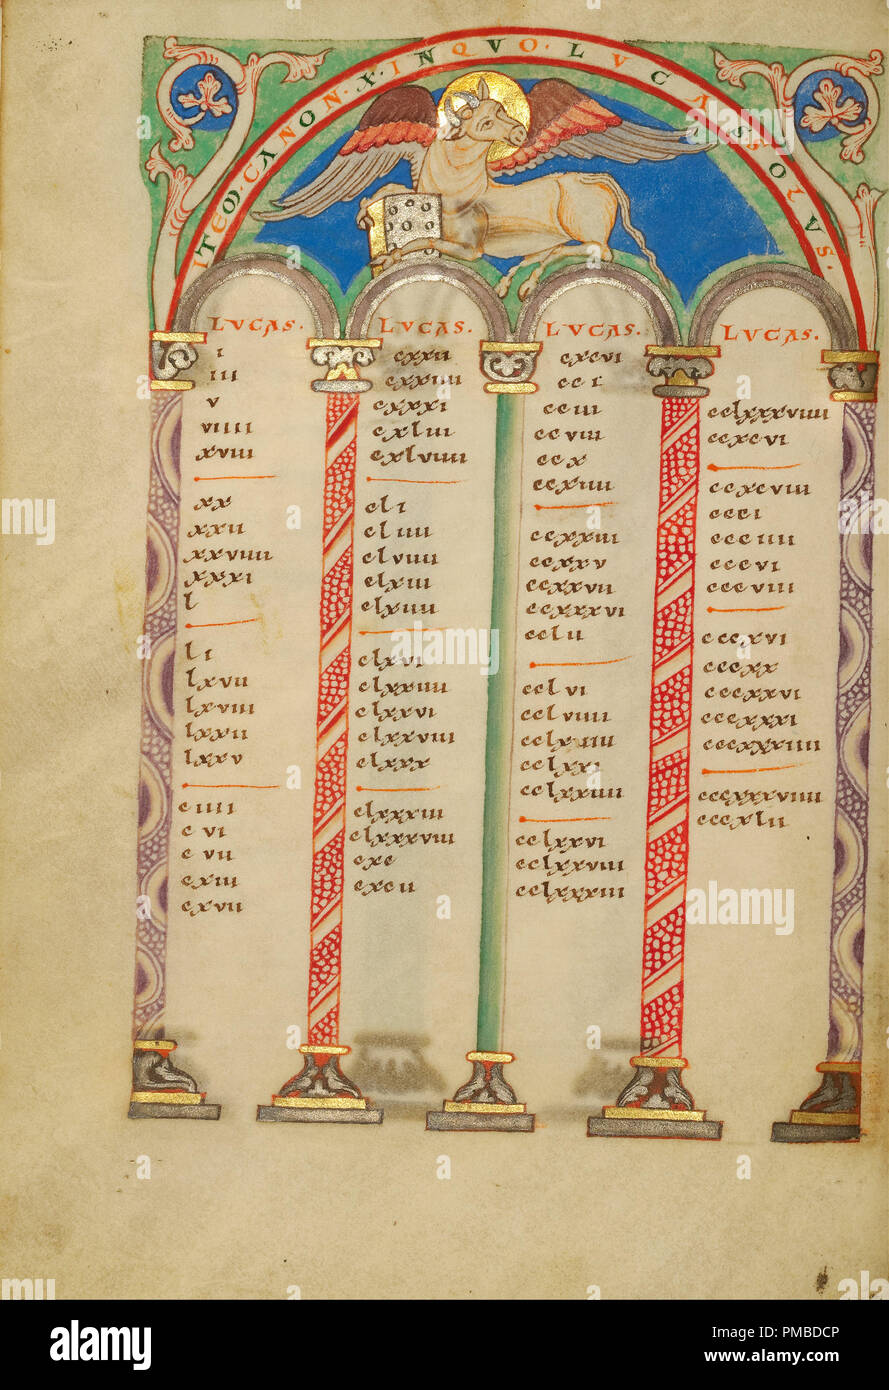 ITEM·CANON·X·INQVO·LVCASSOLVS·
LVCAS.
i
iii
v
viiii
xviii
xx
xxii
xxviiii
xxxi
l
li
lxvii
lxviii
lxxii
lxxv
ciiii
cvi
cvii
cxiii
cxvii
LVCAS.
cxxii
cxxiiii
cxxxi
cxliii
cxlviiii
cli
cliiii
clviiii
clxiii
clxiiii
clxvi
clxxiiii
clxxvi
clxxviii
clxxx
clxxxiii
clxxxviii
cxc
cxcii
LVCAS.
cxcvi
cci
cciii
ccviii
ccx
ccxiiii
ccxxiii
ccxxv
ccxxvii
ccxxxvi
cclii
cclvi
cclviiii
cclxxi
cclxxiiii
cclxxvi
cclxxviii
cclxxxiii
LVCAS.
cclxxxviiii
ccxcvi
ccxcviii
ccci
ccciiii
cccvi
cccviii
cccxvi
cccxx
cccxxvi
cccxxxi
cccxxxiiii
cccxxxviiii
cccxlii
alamy
Image ID: PMBDCP
www.alamy.com